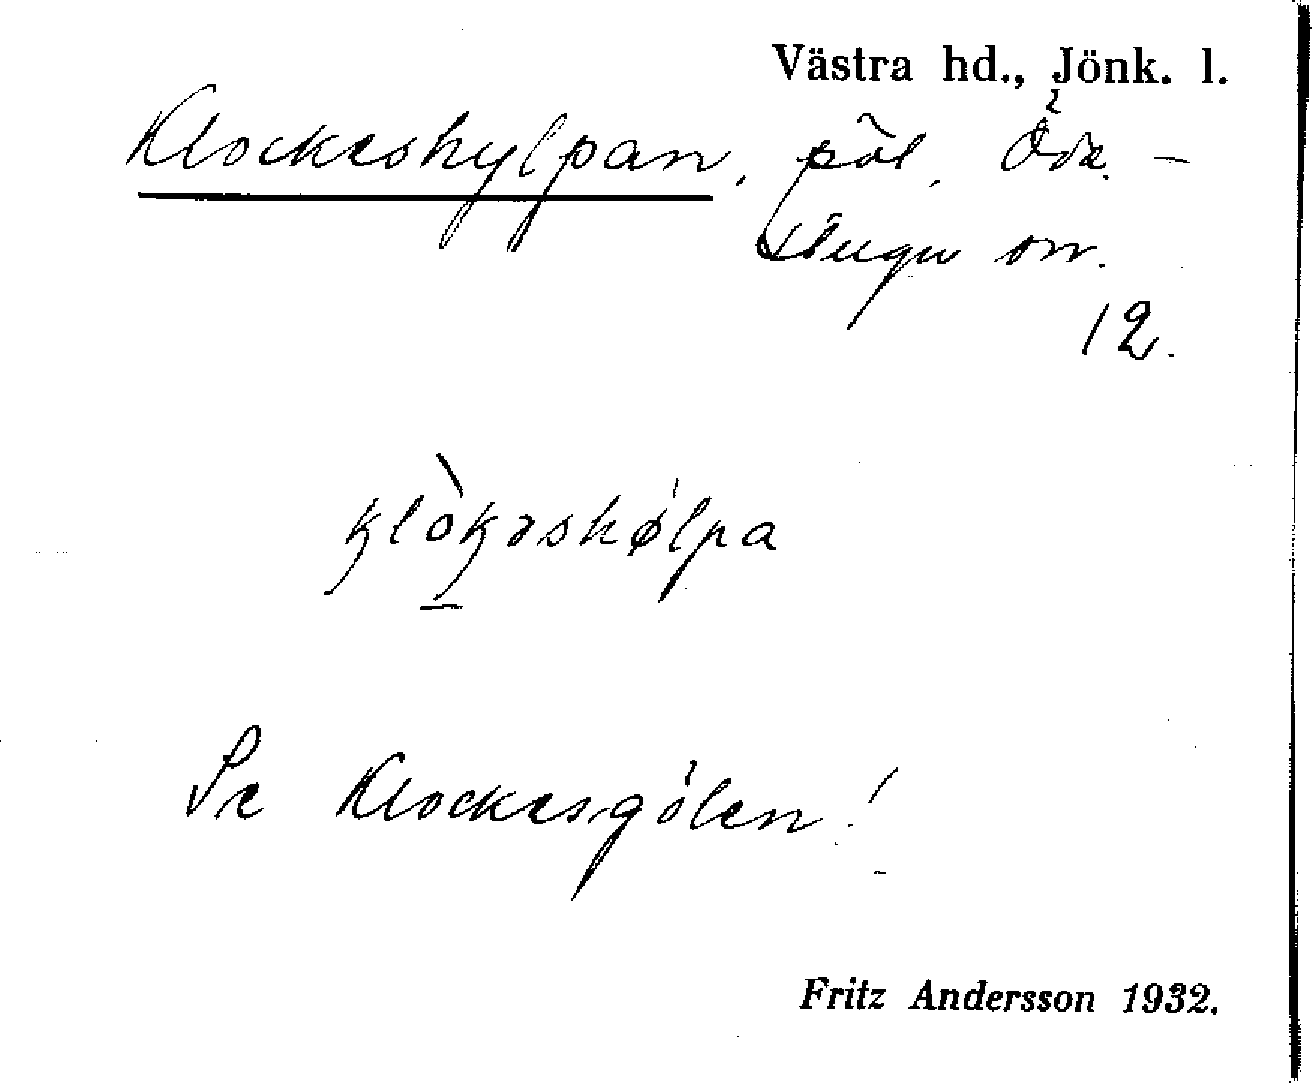 Västra hd., Jönk. l.
Klockeshylpan, pöl,
12.
klòkəshølpa
Se Klockesgölen!
Fritz Andersson 1932.